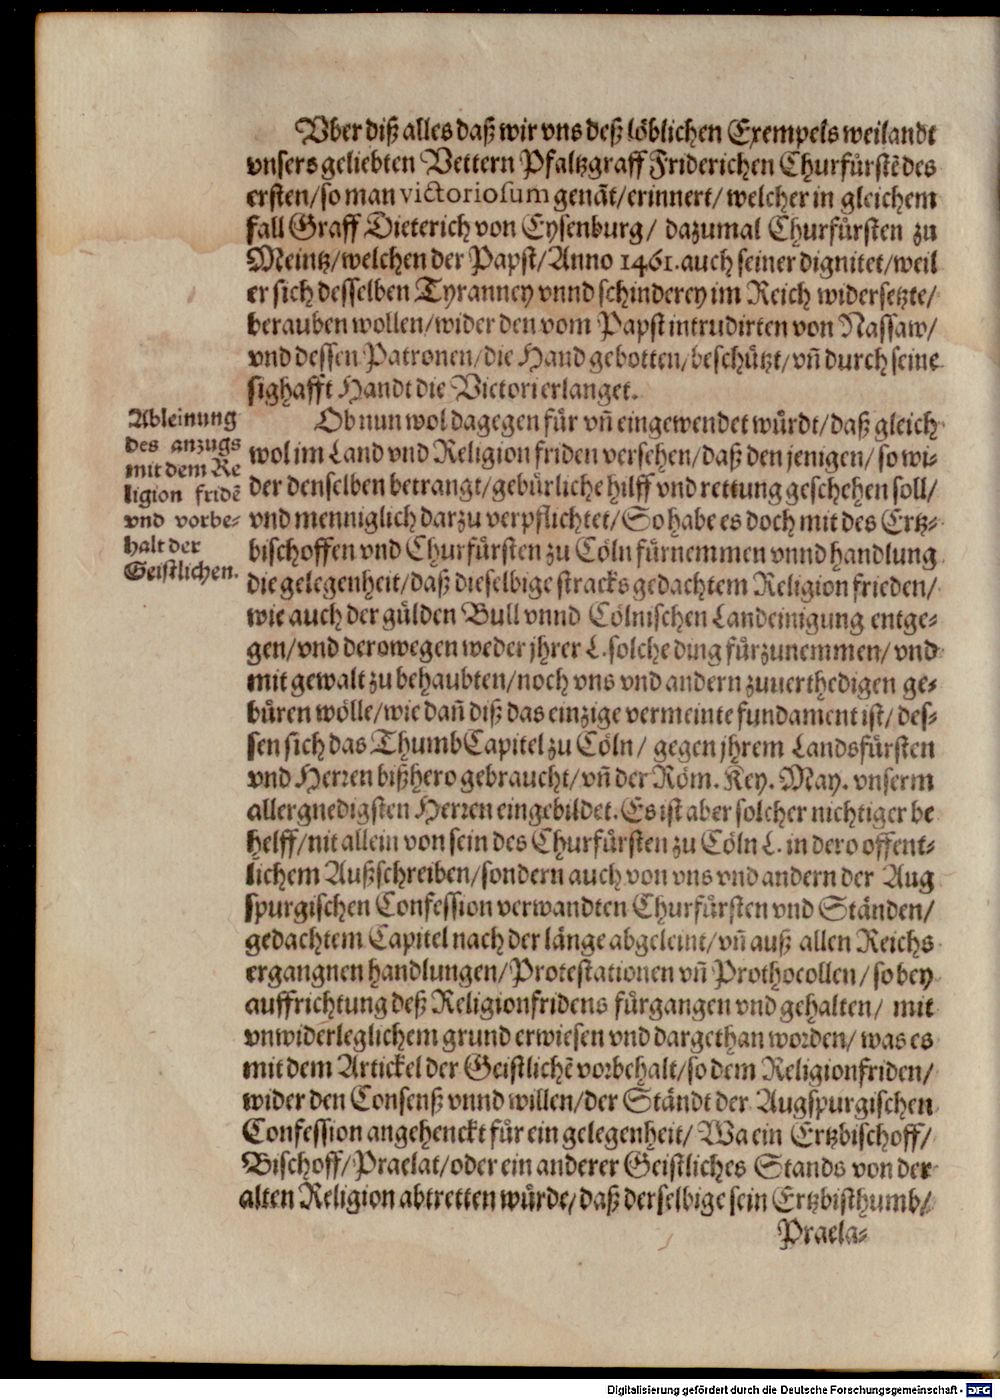 Vber diß alles daß wir vns deß löblichen Exempels weilandt
vnsers geliebten Vettern Pfaltzgraff Friderichen Churfürstẽ des
ersten/so man victoriosum genãt/erinnert/welcher in gleichem
fall Graff Dieterich von Eysenburg/ dazumal Churfürsten zu
Meintz/welchen der Papst/Anno 1461.auch seiner dignitet/weil
er sich desselben Tyranney vnnd schinderey im Reich widersetzte/
berauben wollen/wider den vom Papst intrudirten von Nassaw/
vnd dessen Patronen/die Hand gebotten/beschützt/vñ durch seine
sighafft Handt die Victori erlanget.
Ableinung
des anzugs
mit dem Re
ligion fridẽ
vnd vorbe-
halt der
Geistlichen.
Ob nun wol dagegen für vñ eingewendet würdt/daß gleich
wol im Land vnd Religion friden versehen/daß den jenigen/so wi-
der denselben betrangt/gebürliche hilff vnd rettung geschehen soll/
vnd menniglich darzu verpflichtet/So habe es doch mit des Ertz-
bischoffen vnd Churfürsten zu Cöln fürnemmen vnnd handlung
die gelegenheit/daß dieselbige stracks gedachtem Religion frieden/
wie auch der gülden Bull vnnd Cölnischen Landeinigung entge-
gen/vnd derowegen weder jhrer L.solche ding fürzunemmen/vnd
mit gewalt zu behaubten/noch vns vnd andern zuuerthedigen ge-
büren wölle/wie dañ diß das einzige vermeinte fundament ist/des-
sen sich das ThumbCapitel zu Cöln/ gegen jhrem Landsfürsten
vnd Herren bißhero gebraucht/vñ der Röm. Key. May. vnserm
allergnedigsten Herren eingebildet.Es ist aber solcher nichtiger be
helff/nit allein von sein des Churfürsten zu Cöln L. in dero offent-
lichem Außschreiben/sondern auch von vns vnd andern der Aug
spurgischen Confession verwandten Churfürsten vnd Ständen/
gedachtem Capitel nach der länge abgeleint/vñ auß allen Reichs
ergangnen handlungen/Protestationen vñ Prothocollen/so bey
auffrichtung deß Religionfridens fürgangen vnd gehalten/ mit
vnwiderleglichem grund erwiesen vnd dargethan worden/was es
mit dem Artickel der Geistlichẽ vorbehalt/so dem Religionfriden/
wider den Consenß vnnd willen/der Ständt der Augspurgischen
Confession angehenckt für ein gelegenheit/ Wa ein Ertzbischoff/
Bischoff/Praelat/oder ein anderer Geistliches Stands von der
alten Religion abtretten würde/daß derselbige sein Ertzbisthumb/
Praela-
Digitalisierung gefördert durch die Deutsche Forschungsgemeinschaft - DFG